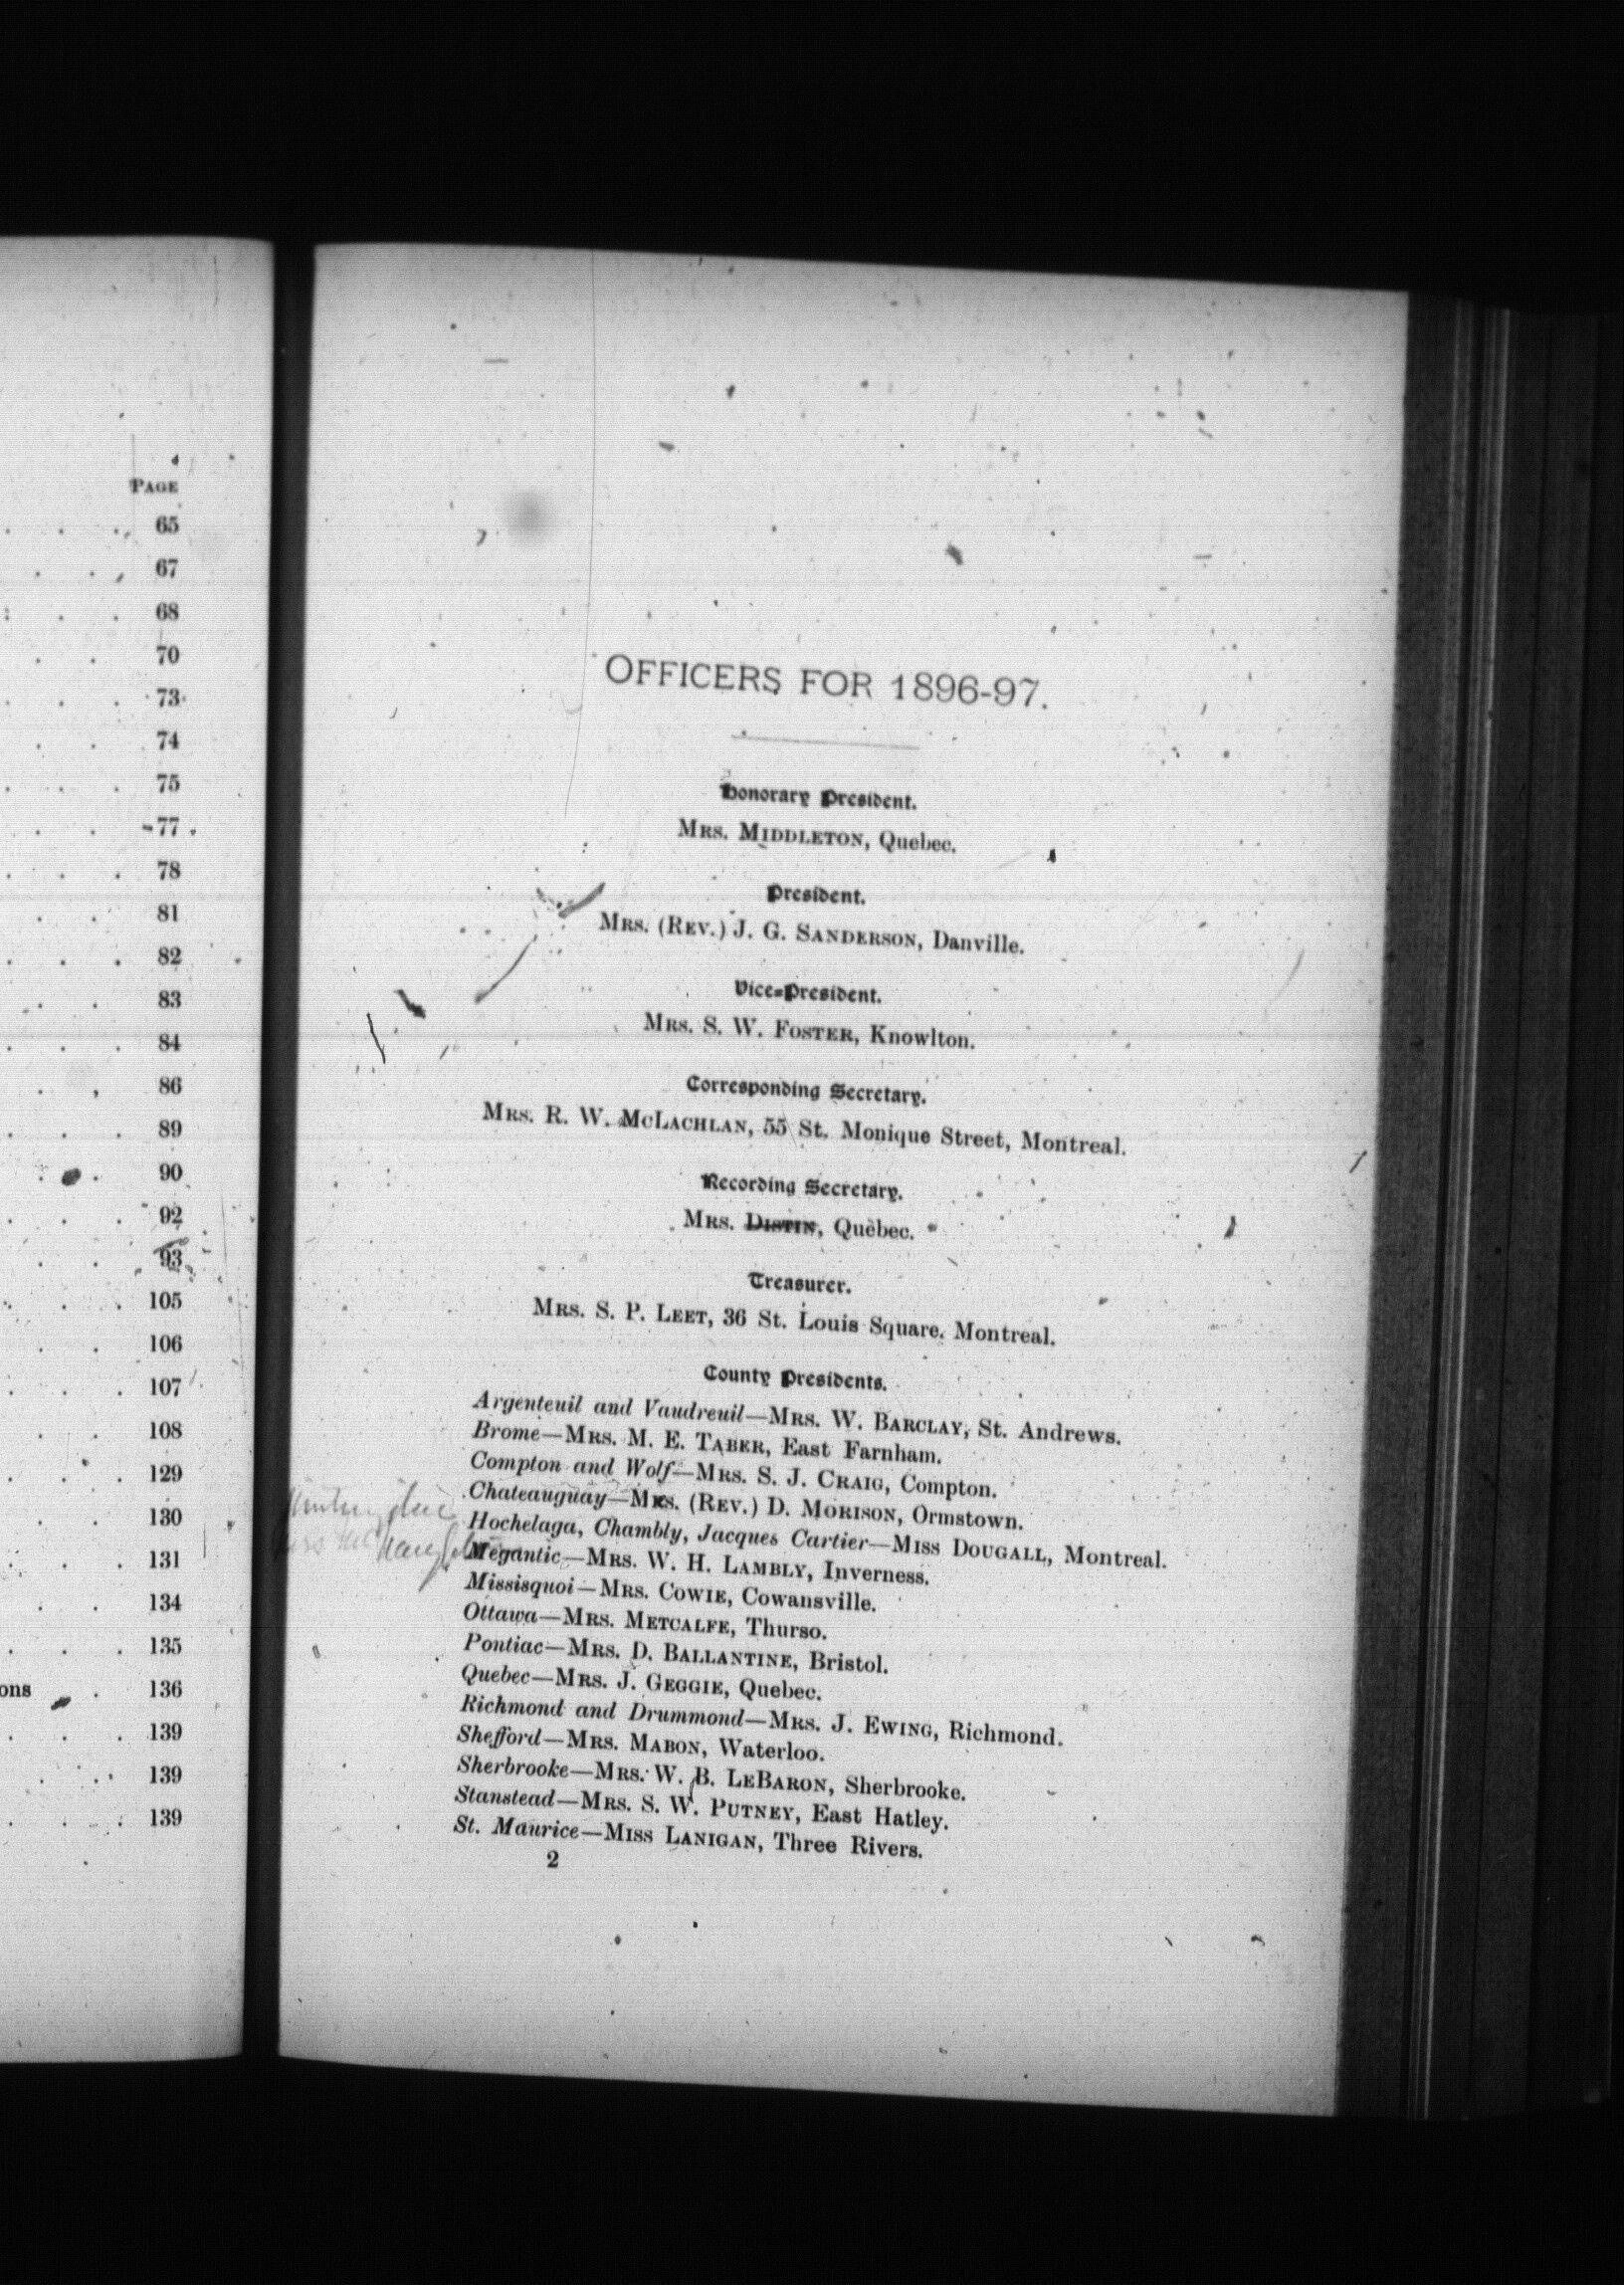 PAGE
65
67
68
70
73
74
75
77
78
81
82
83
84
86
89
90
92
93
105
106
107
108
129
130
131
134
135
ons 136
139
139
139
OFFICERS FOR 1896-97.
Honorary President.
MRS. MIDDLETON, Quebec.
President.
MRS. (REV.) J. G. SANDERSON, Danville.
Vice-President.
MRS. S. W. FOSTER, Knowlton.
Corresponding Secretary.
MRS. R. W. MCLACHLAN, 55 St. Monique Street, Montreal.
Recording Secretary.
MRS. DISTIN, Quebec.
Treasurer.
MRS. S. P. LEET, 36 St. Louis Square, Montreal.
County Presidents.
Argenteuil and Vaudreuil—MRS. W. BARCLAY, St. Andrews.
Brome—MRS. M. E. TABER, East Farnham.
Compton and Wolf—MRS. S. J. CRAIG, Compton.
Chateauguay—MRS. (REV.) D. MORISON, Ormstown.
Hochelaga, Chambly, Jacques Cartier—MISS DOUGALL, Montreal.
Megantic—MRS. W. H. LAMBLY, Inverness.
Missisquoi—MRS. COWIE, Cowansville.
Ottawa—MRS. METCALFE, Thurso.
Pontiac—MRS. D. BALLANTINE, Bristol.
Quebec—MRS. J. GEGGIE, Quebec.
Richmond and Drummond—MRS. J. EWING, Richmond.
Shefford—MRS. MABON, Waterloo.
Sherbrooke—MRS. W. B. LEBARON, Sherbrooke.
Stanstead—MRS. S. W. PUTNEY, East Hatley.
St. Maurice—MISS LANIGAN, Three Rivers.
2